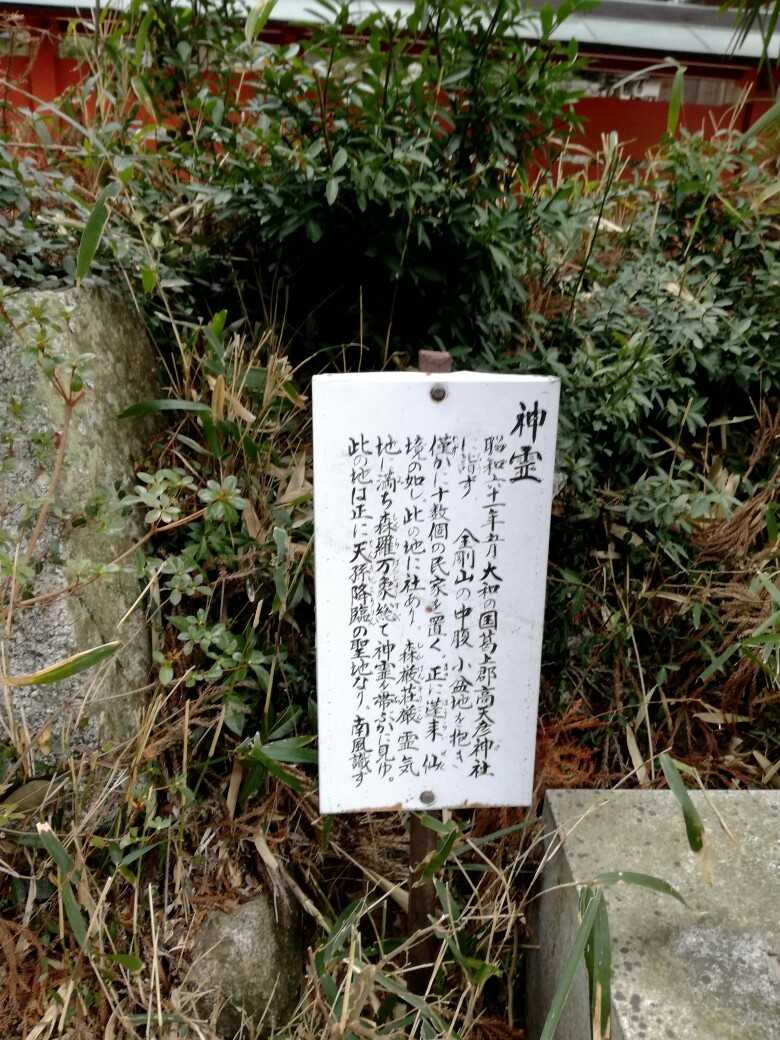 神霊
昭和六十一年五月大和の国葛上郡高天彦神社
に詣ず 金剛山の中腹 小盆地を抱き
僅かに十数個の民家を置く 正に蓬莱 仙
境の如し、此の地に社あり 森厳荘厳 霊気
地に満ち 森羅万象総て神霊を帯ぶかに見ゆ。
此の地は正に天孫降臨の聖地なり 南風識す